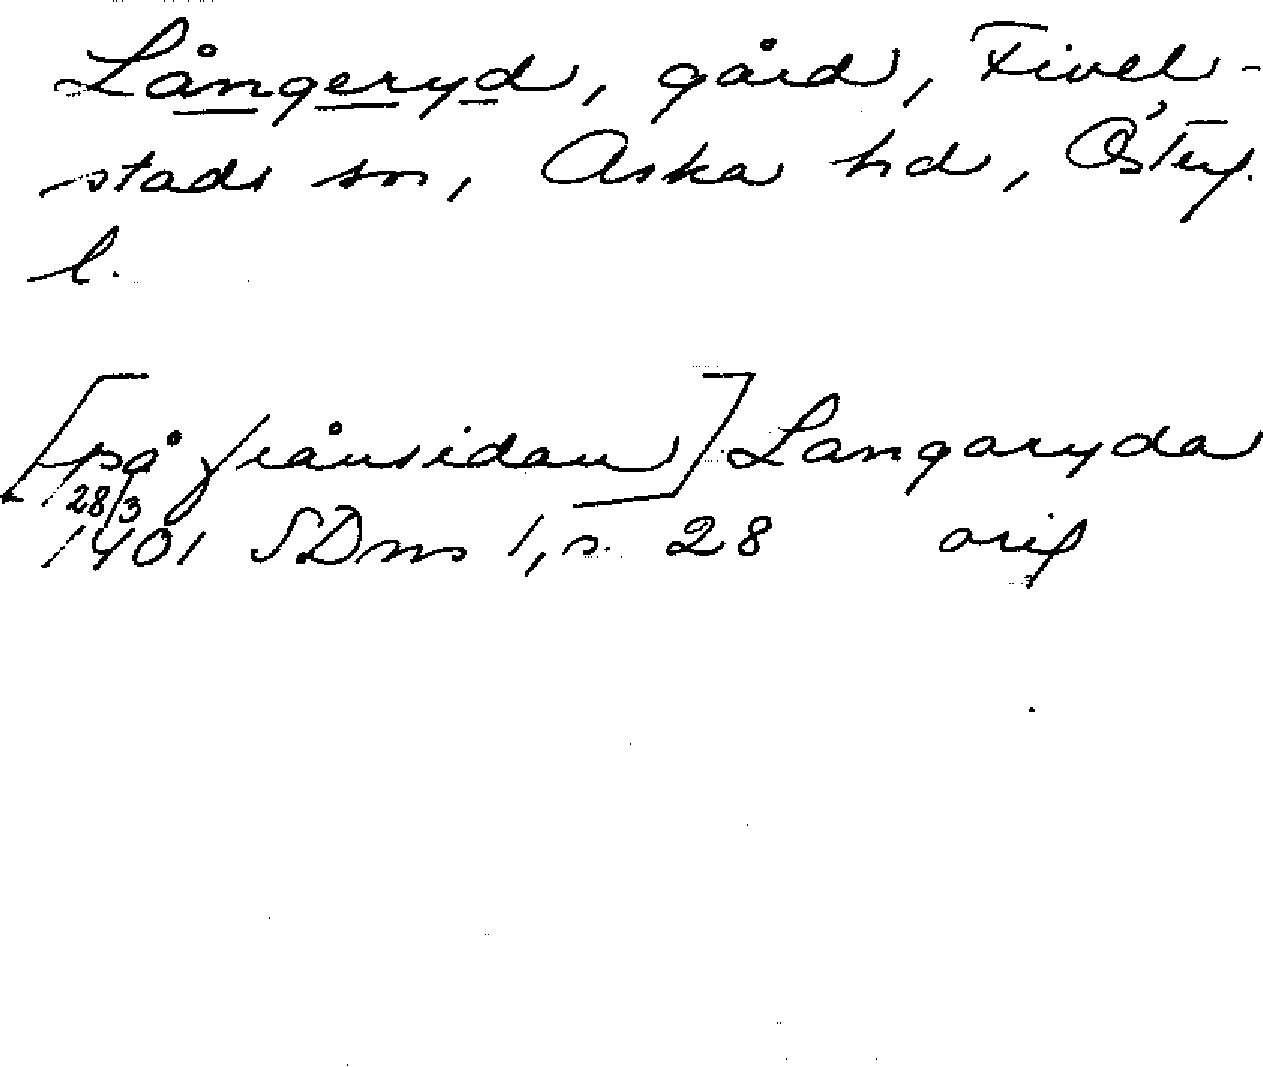 Långeryd, gård, Fivel-
stads sn, Aska hd, Österg.
l.
[på frånsidan] Langaryda
28/3
1401 SDns 1, s. 28 orig